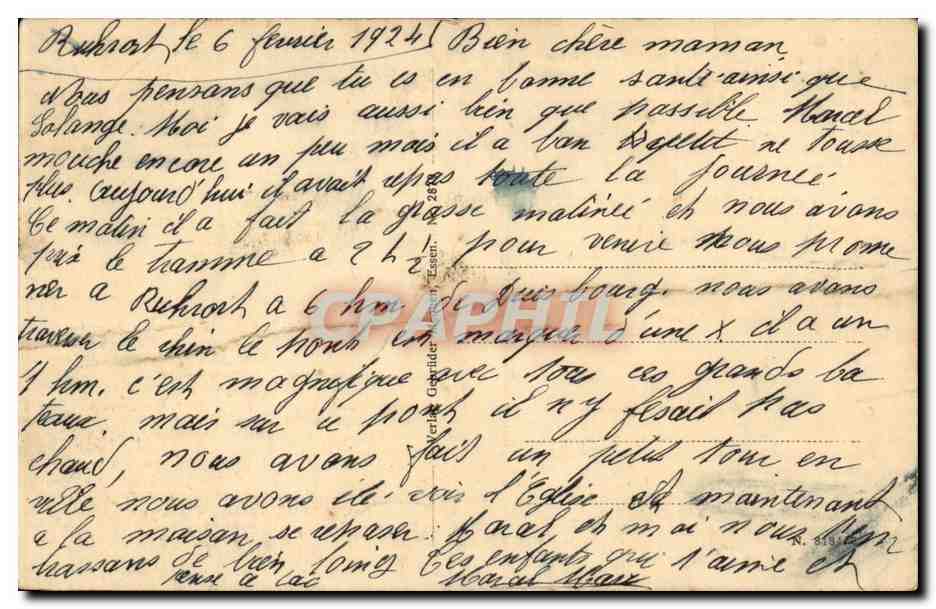 Ruhrort le 6 février 1924 Bien chère maman
Nous pensons que tu es en bonne santé ainsi que
Solange. Moi je vais aussi bien que possible Marcel
mouche encore un peu mais il a bon appetit ne tousse
plus. aujourd'hui il avait repos toute la journeé
Ce matin il a fait la grasse matineé et nous avons
pris le tramme a 2 h ½ pour venire nous prome
ner a Ruhrort a 6 km. de Duisbourg. nous avons
traverser le Rhin le pont est marquer d'une x il a un
1 km. c'est magnifique avec tous ces grands ba
teaux. mais sur ce pont il n'y fesait pas
chaud, nous avons fait un petit tour en
ville nous avons été voir l'Eglise et maintenant
a la maison se reposer. Marcel et moi nous t'em
brassons de bien loing Tes enfants qui t'aime et
pense a toi Marcel
Verlag Gebrüder Essen. N. 2878
N. 818
CPAPHIL